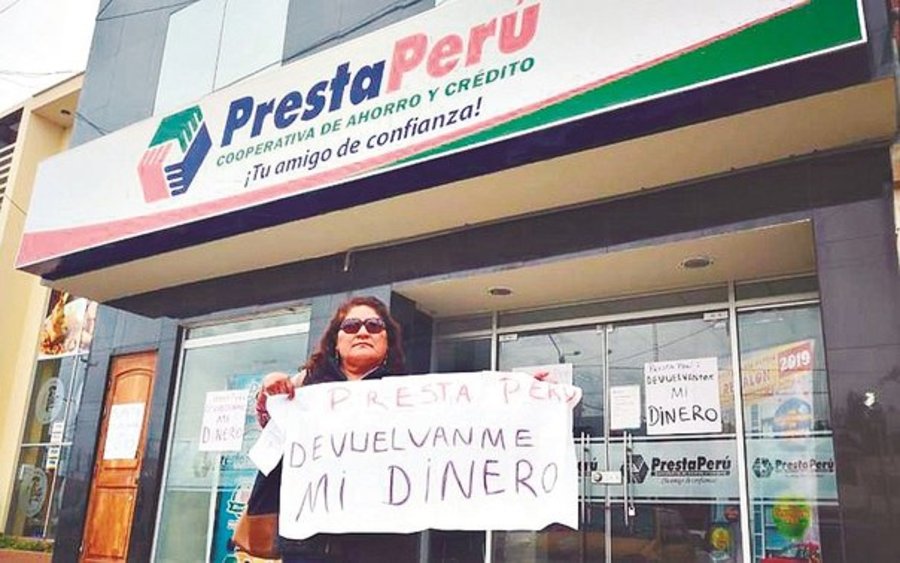 PrestaPerú
COOPERATIVA DE AHORRO Y CRÉDITO
¡Tu amigo de confianza!
PRESTA PERÚ
DEVUELVANME
MI DINERO
MI
DINERO
PRESTA PERÚ
DEVUELVANME
MI
DINERO
2019
PrestaPerú
¡Tu amigo de confianza!
PrestaPerú